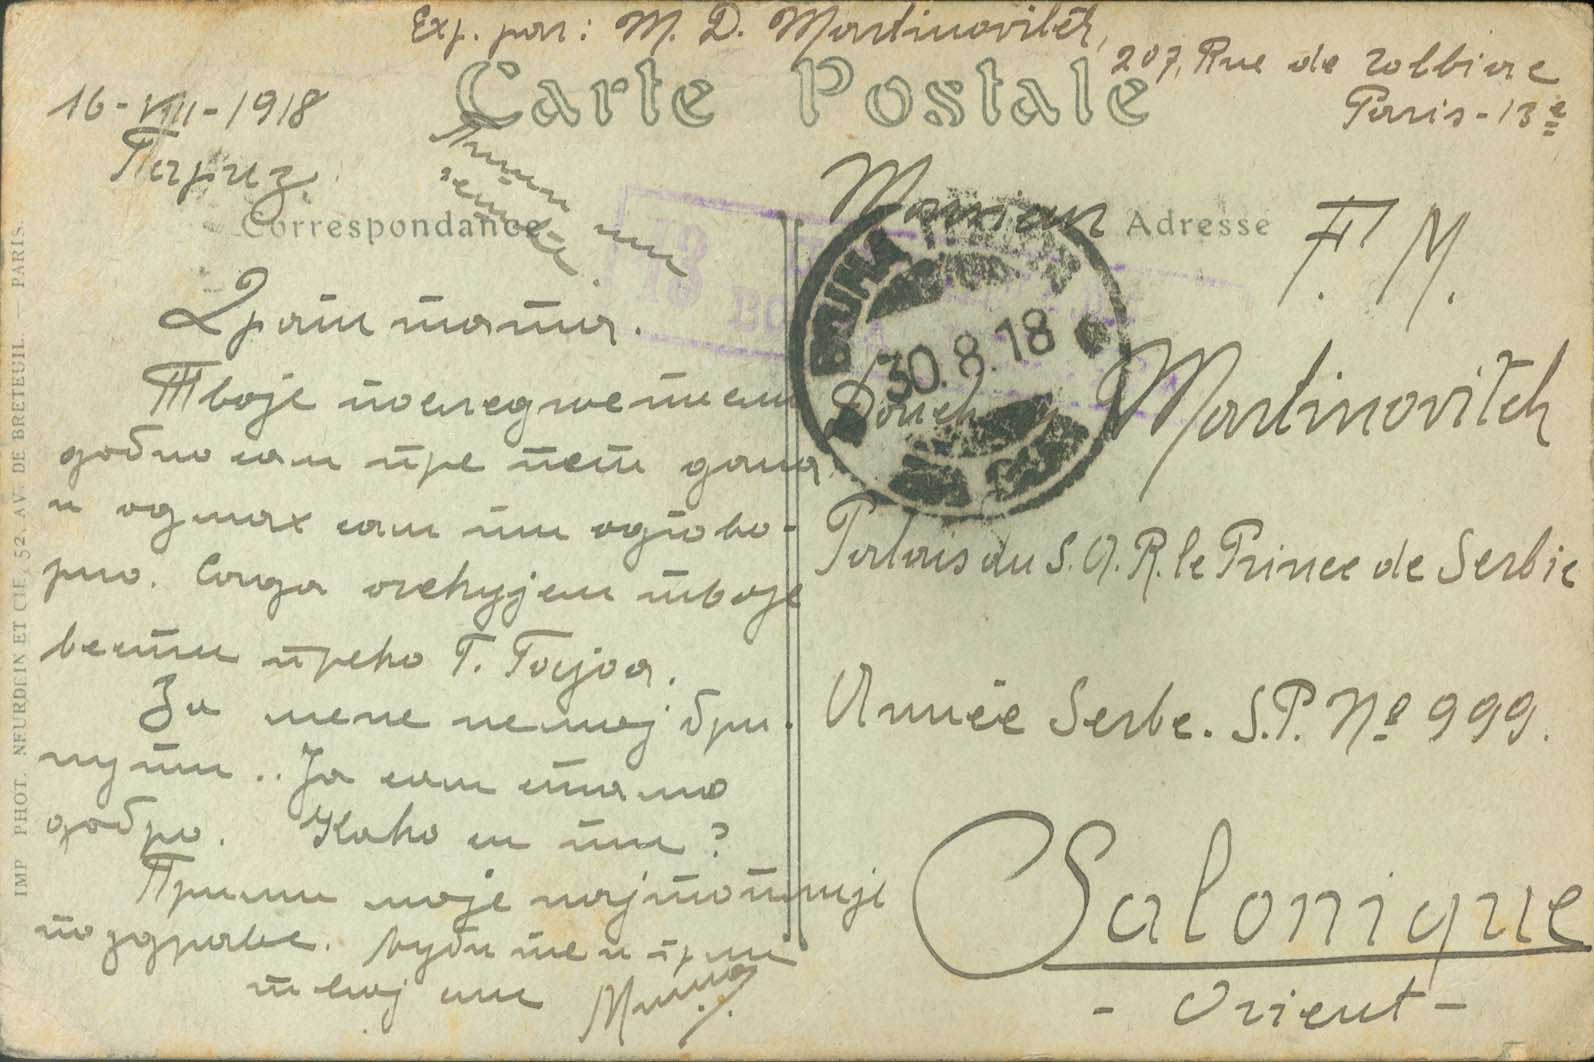 Exp. par: M. D. Martinovitch,
207, Rue de Tolbiac
Paris-13e
Carte Postale
16-VIII-1918
Париз.
Correspondance
Adresse
Пиши ми
Драги тата.
Твоје последње писмо
добио сам пре пет дана
и одмах сам ти одгово-
рио. Сада очекујем твоје
вести преко Г. Гојса.
За мене немој бри-
нути.. Ја сам стално
добро. Како си ти?
Прими моје најтоплије
поздраве. Љуби те и грли
твој син
Monsieur
F. M.
Martinovitch
Palais du S. A. R. le Prince de Serbie
Armée Serbe. S.P. No 999.
Salonique
- Orient -
30.8.18
IMP. PHOT. NEURDEIN ET CIE, 52, AV. DE BRETEUIL — PARIS.